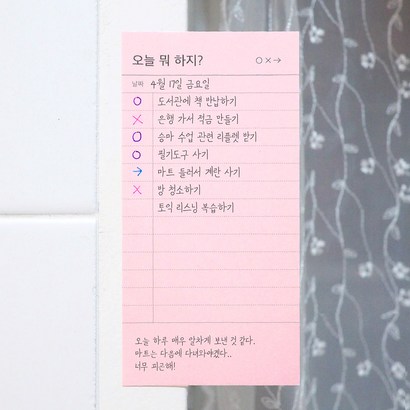 오늘 뭐 하지? ○×→
날짜 4월 17일 금요일
○ 도서관에 책 반납하기
× 은행 가서 적금 만들기
○ 승마 수업 관련 리플렛 받기
○ 필기도구 사기
→ 마트 들러서 계란 사기
× 방 청소하기
토익 리스닝 복습하기
오늘 하루 매우 알차게 보낸 것 같다.
마트는 다음에 다녀와야겠다..
너무 피곤해!